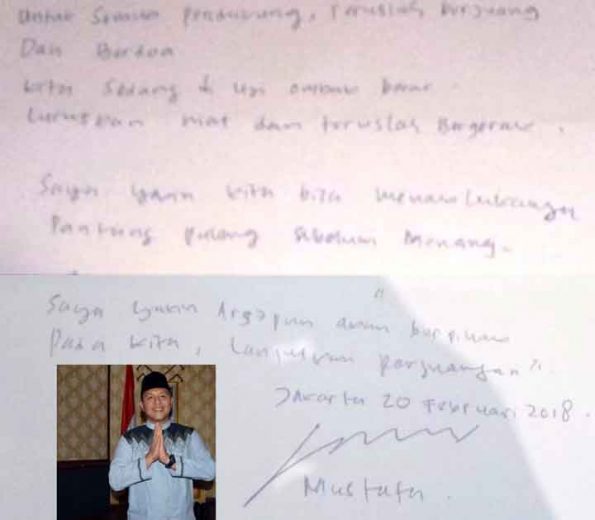 Untuk Semua pendukung, Teruslah berjuang
Dan Berdoa
kita Sedang di uji ombak besar.
Luruskan niat dan teruslah Bergerak.
Saya yakin kita bisa menang
Pantang pulang sebelum Menang.
Saya yakin Argopun akan berpihak
Pada kita, Lanjutkan perjuangan".
Jakarta 20 Februari 2018.
Mustafa.